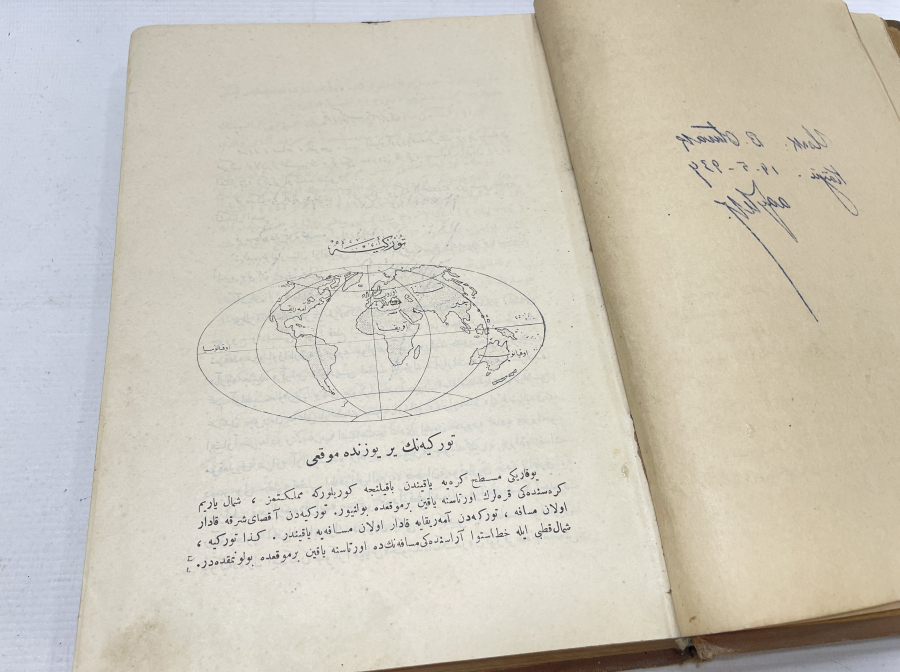 توركيه
آفريقا
اوقيانوسيا
توركيه‌نك ير يوزنده موقعی
يوقاريكی مسطح كره‌يه ياقيندن باقيلنجه كوريلوركه مملكتمز ، شمال ياريم
كره‌سنده‌كی قره‌لرك اورتاسنه ياقين برموقعده بولنيور. توركيه‌دن آقصای شرقه قادار
اولان مسافه ، توركيه‌دن آمه‌ريقايه قادار اولان مسافه‌يه ياقيندر . كذا توركيه ،
شمال قطبی ايله خط استوا آراسنده‌كی مسافه‌نك ده اورتاسنه ياقين برموقعده بولونمقده‌در.
19-5-939